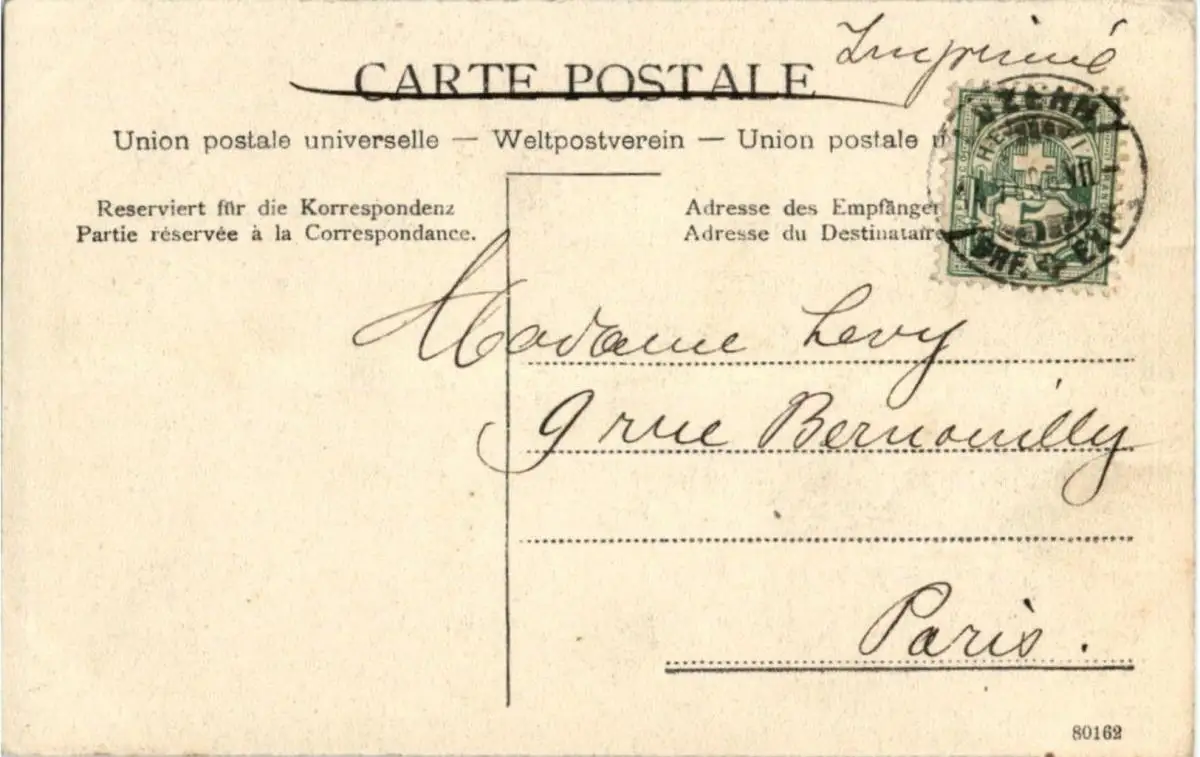 Imprimé
CARTE POSTALE
Union postale universelle — Weltpostverein — Union postale
Reserviert für die Korrespondenz
Partie réservée à la Correspondance.
Adresse des Empfänger
Adresse du Destinataire
LUZERN
HELVETIA
VII
5
BRF. EXP.
Madame Levy
9 rue Bernouilly
Paris.
80162